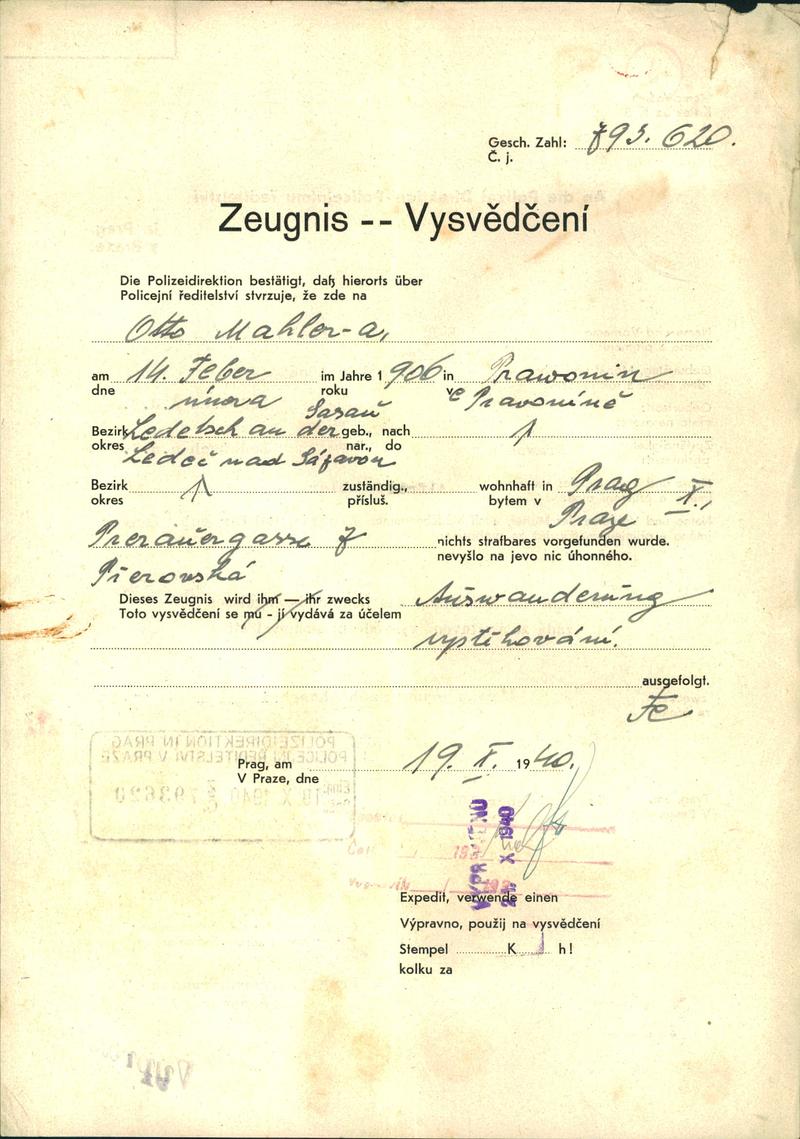 Gesch. Zahl: 793.620.
Č. j.
Zeugnis -- Vysvědčení
Die Polizeidirektion bestätigt, daß hierorts über
Policejní ředitelství stvrzuje, že zde na
Otto Mahler-a,
am 14. Feber im Jahre 1906 in Prawonin
dne února roku ve Pravoníně
Sasau
Bezirk Ledetsch an der geb., nach
okres Ledeč nad Sázavou nar., do
Bezirk zuständig., wohnhaft in Prag X.,
okres přísluš. bytem v Praze
Prerauergasse 7 nichts strafbares vorgefunden wurde.
Přerovská nevyšlo na jevo nic úhonného.
Dieses Zeugnis wird ihm — ihr zwecks Auswanderung
Toto vysvědčení se mu - jí vydává za účelem
vystěhování.
ausgefolgt.
Fe
POLIZEIDIREKTION IN PRAG
POLICEJNÍ ŘEDITELSTVÍ V PRAZE
18 X 1940 793620
Prag, am 19. X. 1940.
V Praze, dne
21. X 1940
Expedit, verwende einen
Výpravno, použij na vysvědčení
Stempel K h!
kolku za